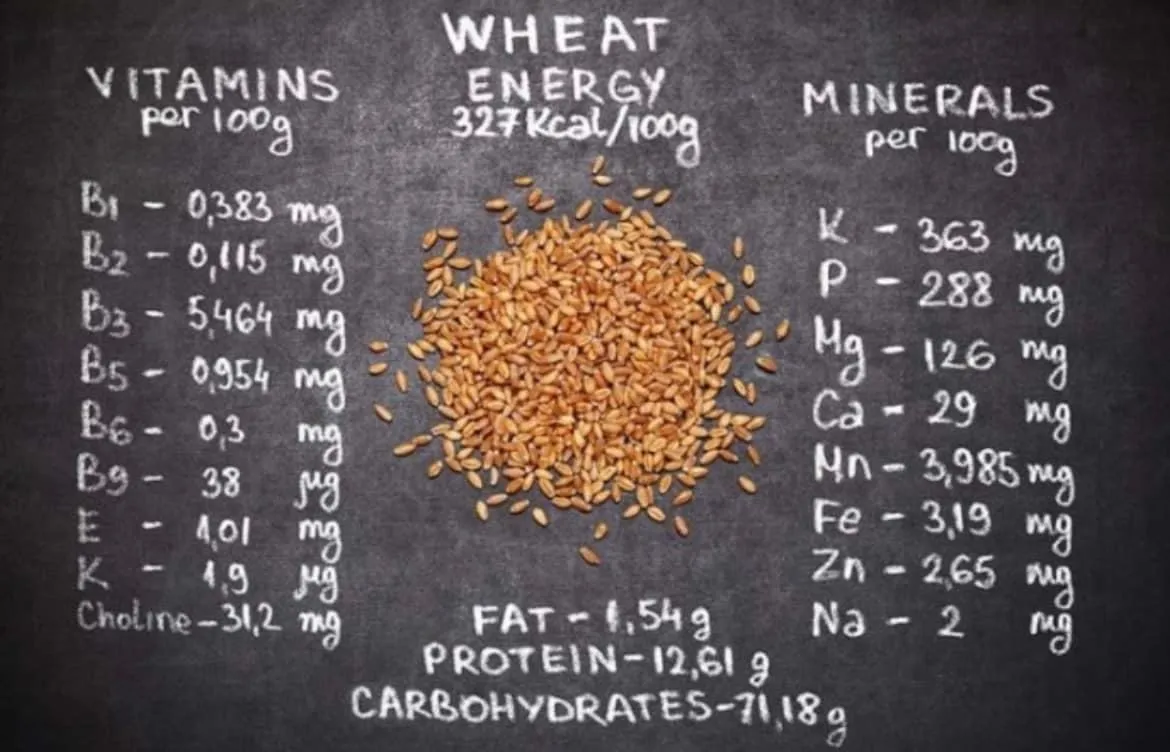 WHEAT
ENERGY
327 Kcal/100g
VITAMINS
per 100g
B1 - 0,383 mg
B2 - 0,115 mg
B3 - 5,464 mg
B5 - 0,954 mg
B6 - 0,3 mg
B9 - 38 µg
E - 1,01 mg
K - 1,9 µg
Choline - 31,2 mg
MINERALS
per 100g
K - 363 mg
P - 288 mg
Mg - 126 mg
Ca - 29 mg
Mn - 3,985 mg
Fe - 3,19 mg
Zn - 2,65 mg
Na - 2 mg
FAT - 1,54 g
PROTEIN - 12,61 g
CARBOHYDRATES - 71,18 g